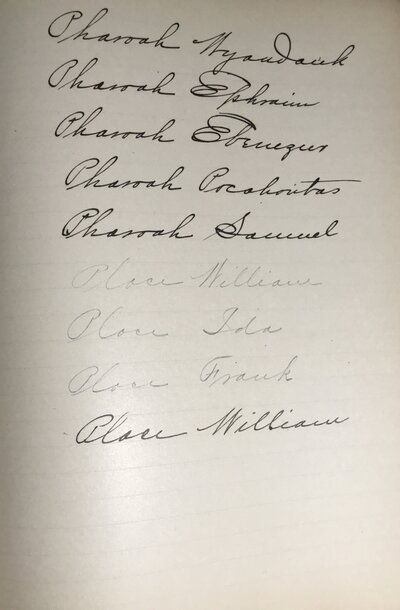 Pharoah Wyandank
Pharoah Ephraim
Pharoah Ebenezer
Pharoah Pocahontas
Pharoah Samuel
Place William
Place Ida
Place Frank
Place William